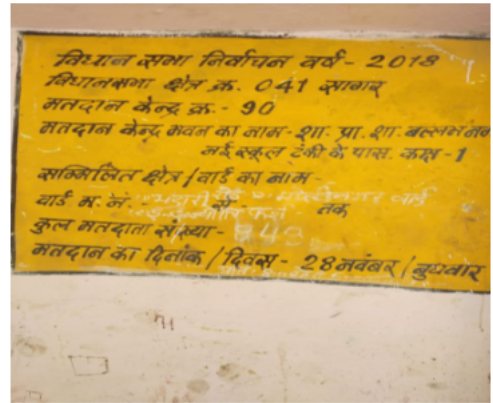 विधान सभा निर्वाचन वर्ष - 2018
विधानसभा क्षेत्र क्र. 041 सागर
मतदान केन्द्र क्र. - 90
मतदान केन्द्र भवन का नाम - शा. प्रा. शा. बल्लभनग
नई स्कूल टंकी के पास. कक्ष - 1
सम्मिलित क्षेत्र / वार्ड का नाम -
वार्ड म. नं. से - तक
कुल मतदाता संख्या -
मतदान का दिनांक / दिवस - 28 नवंबर / बुधवार